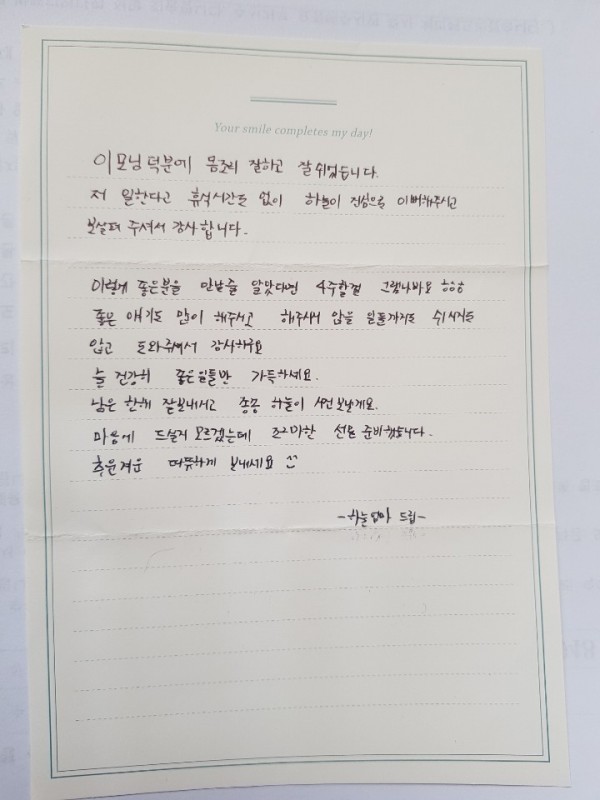 Your smile completes my day!
이모님 덕분에 몸조리 잘하고 잘 쉬었습니다.
저 일한다고 휴식시간도 없이 하늘이 진심으로 이뻐해주시고
보살펴 주셔서 감사합니다.
이렇게 좋은분을 만날줄 알았다면 4주할걸 그랬나봐요 ㅎㅎㅎ
좋은 얘기도 많이 해주시고 해주시지 않을 일들까지도 쉬시지도
않고 도와주셔서 감사해요
늘 건강히 좋은일들만 가득하세요.
남은 한해 잘보내시고 종종 하늘이 사진보낼게요.
마음에 드실지 모르겠는데 조그마한 선물 준비했습니다.
추운겨울 따뜻하게 보내세요 ^^
-하늘엄마 드림-